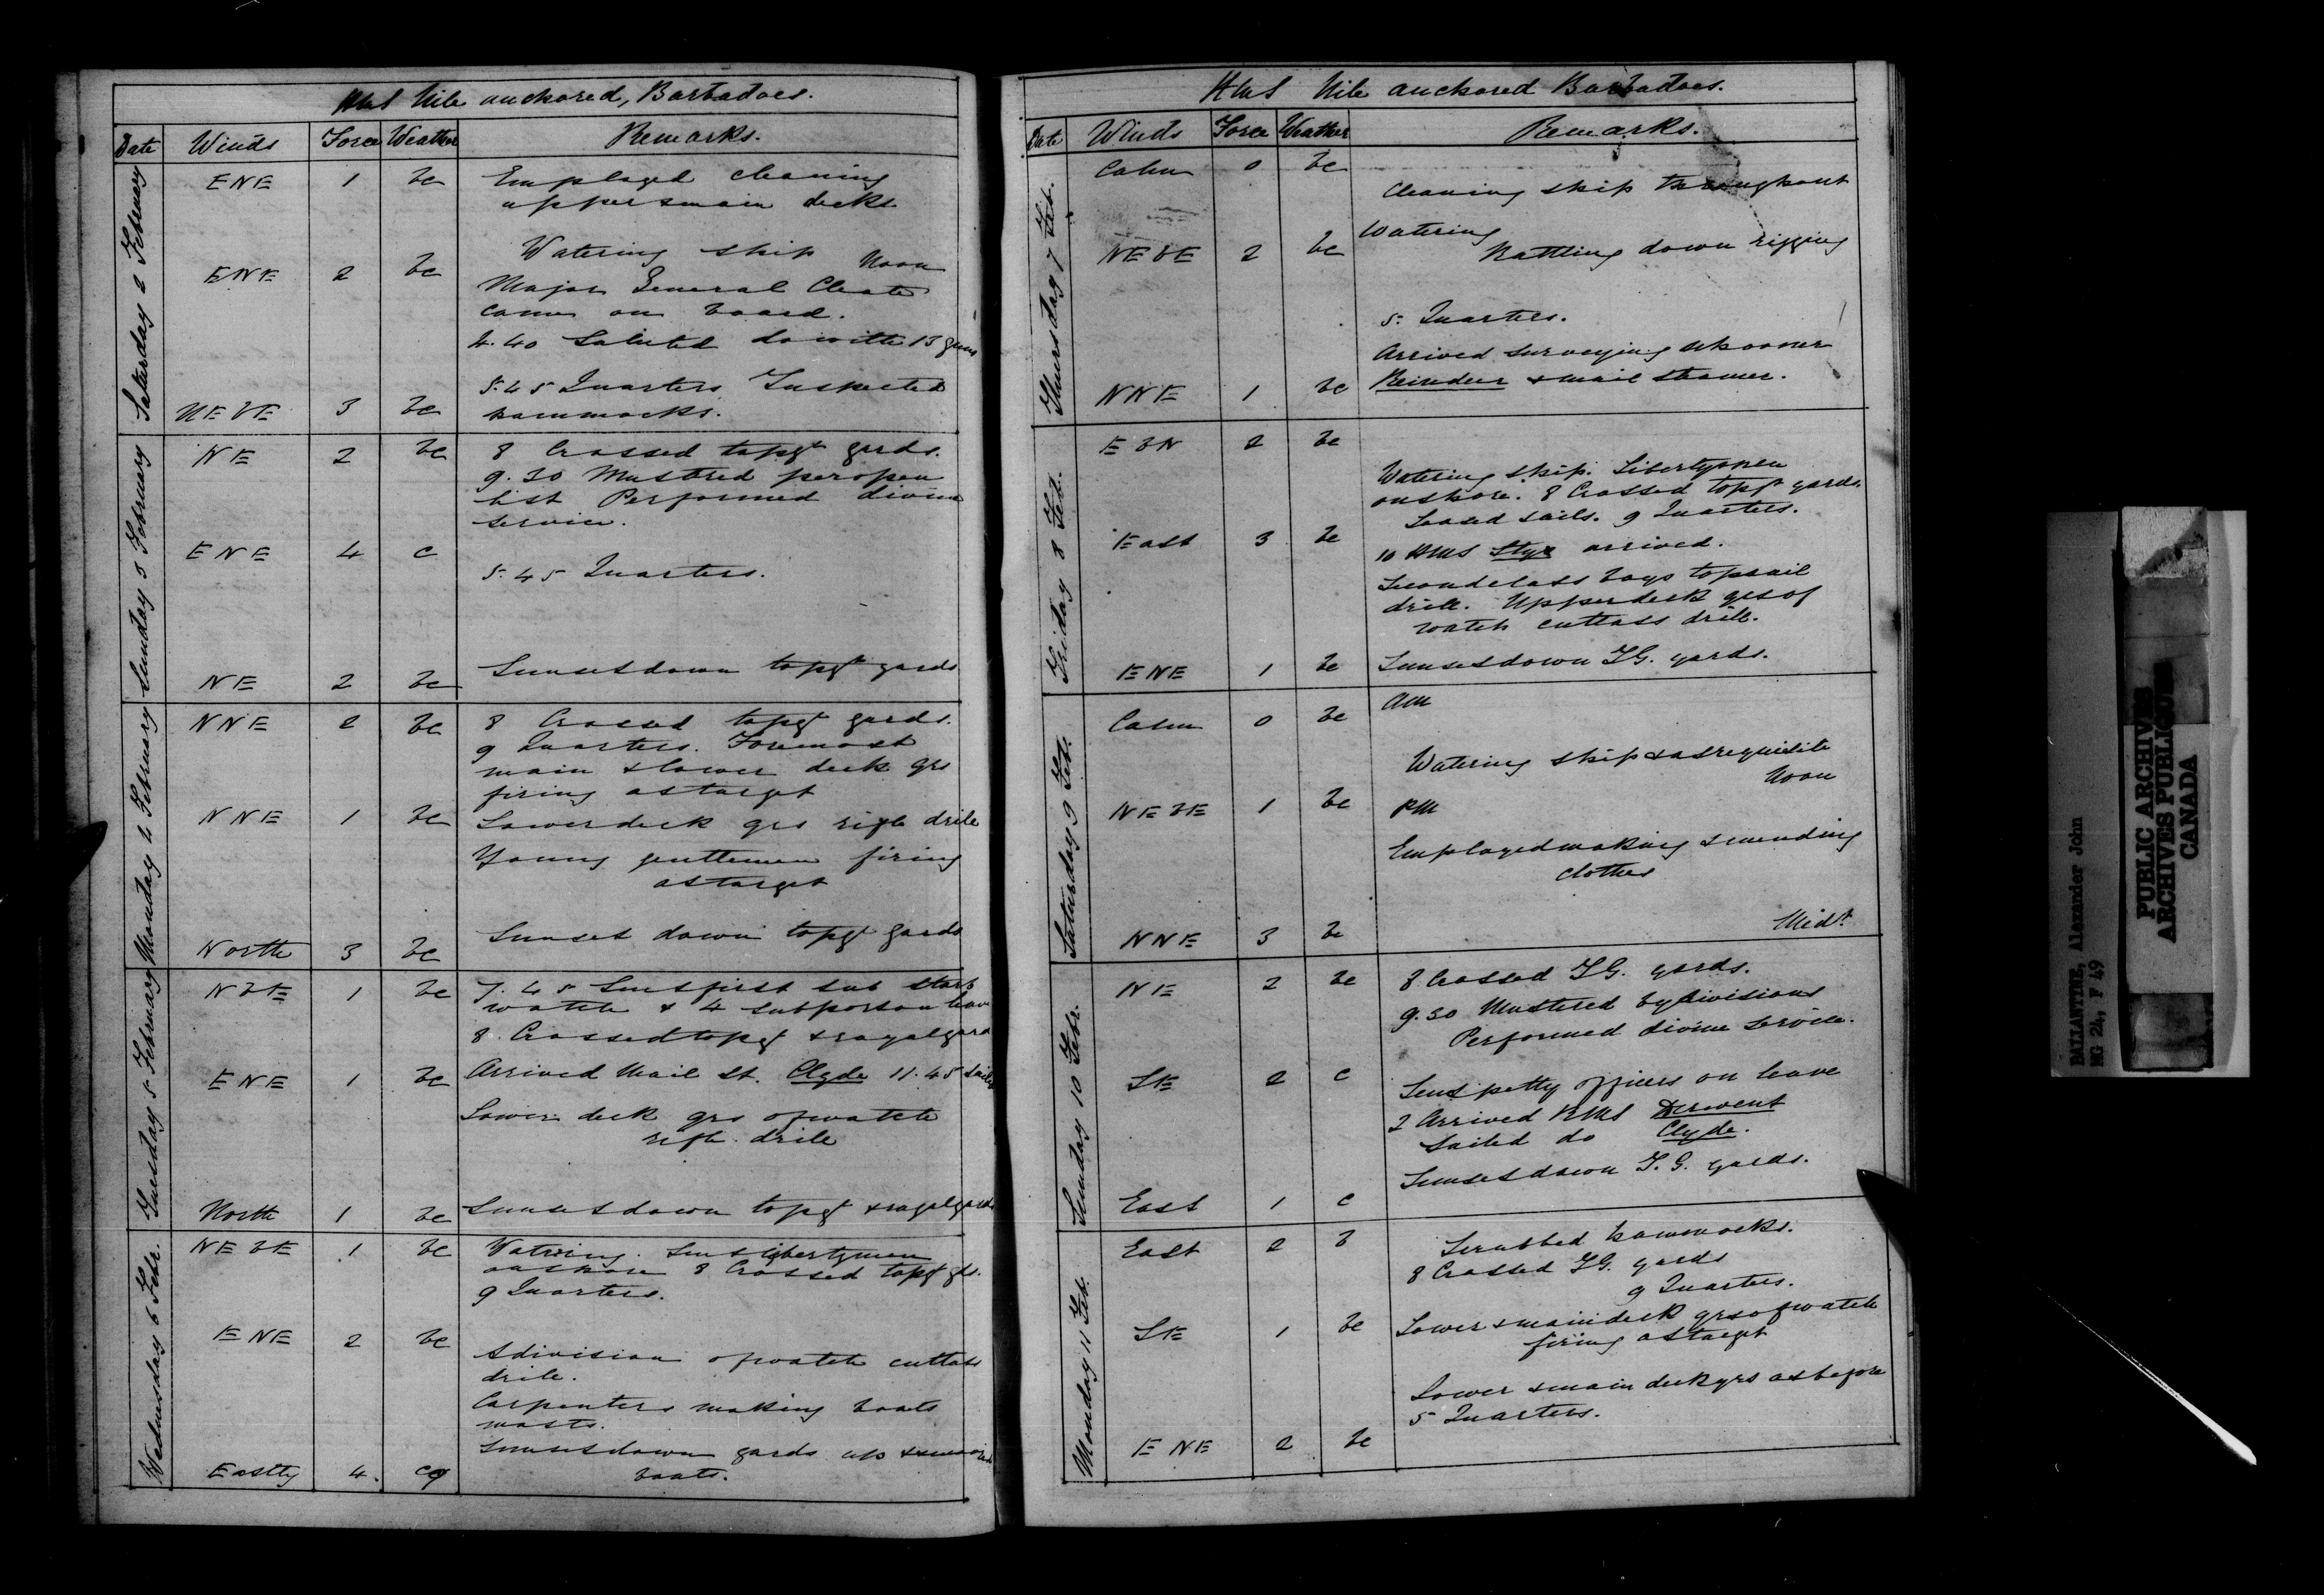 HMS Nile anchored, Barbadoes.
Date Winds Force Weather Remarks.
Saturday 2 February
ENE 1 bc Employed cleaning
upper & main decks
Watering ship Noon
ENE 2 bc Major General
came on board.
4.40 Saluted do with 13 guns
5.45 Quarters Inspected
NEbE 3 bc hammocks.
Sunday 3 February
NE 2 bc 8 Crossed topgt yards.
9.30 Mustered per open
list Performed divine
service.
ENE 4 c
5.45 Quarters.
NE 2 bc Sunset down topgt yards
Monday 4 February
NNE 2 bc 8 Crossed topgt yards.
9 Quarters. Foremost
main & lower deck grs
firing at target
NNE 1 bc Lower deck grs rifle drill
Young gentlemen firing
at target
North 3 bc Sunset down topgt yards
Tuesday 5 February
NbE 1 bc 7.45 Sent first sub starb
watch & 4 sub port on leave
8. Crossed topgt & royal yard
ENE 1 bc Arrived Mail St. Clyde 11.45 sailed
Lower deck grs of watch
rifle drill
North 1 bc Sunset down topgt & royal yards
Wednesday 6 Febr.
NEbE 1 bc Watering. Sent libertymen
on shore 8 Crossed topgt yds.
9 Quarters.
ENE 2 bc
& division of watch cutlass
drill.
Carpenters making boats
masts.
Sunset down yards up
Eastly 4. cq boats.
HMS Nile anchored Barbadoes.
Date Winds Force Weather Remarks.
Thursday 7 Feb.
Calm 0 bc
Cleaning ship throughout
Watering
NEbE 2 bc Rattling down rigging
5. Quarters.
Arrived surveying schooner
NNE 1 bc Reindeer & mail steamer.
Friday 8 Feb.
EbN 2 bc
Watering ship. Libertymen
on shore. 8 Crossed topgt yards.
Loosed sails. 9 Quarters.
East 3 bc 10 HMS Styx arrived.
Second class boys topsail
drill. Upper deck grs of
watch cutlass drill.
ENE 1 bc Sunset down T.G. yards.
Saturday 9 Feb.
AM
Calm 0 bc
Watering ship & as requisite
Noon
NEbE 1 bc PM
Employed making & mending
clothes
NNE 3 bc Midt.
Sunday 10 Febr.
NE 2 bc 8 Crossed T.G. yards.
9.30 Mustered by divisions
Performed divine service.
SE 2 c Sent petty officers on leave
2 Arrived RMS Derwent
Sailed do Clyde.
Sunset down T.G. yards.
East 1 c
Monday 11 Feb.
East 2 b Scrubbed hammocks.
8 Crossed T.G. yards
9 Quarters.
SE 1 bc Lower & main deck grs of watch
firing at target
Lower & main deck grs as before
5 Quarters.
ENE 2 bc
BALLANTYNE, Alexander John
MG 24, F 49
PUBLIC ARCHIVES
ARCHIVES PUBLIQUES
CANADA